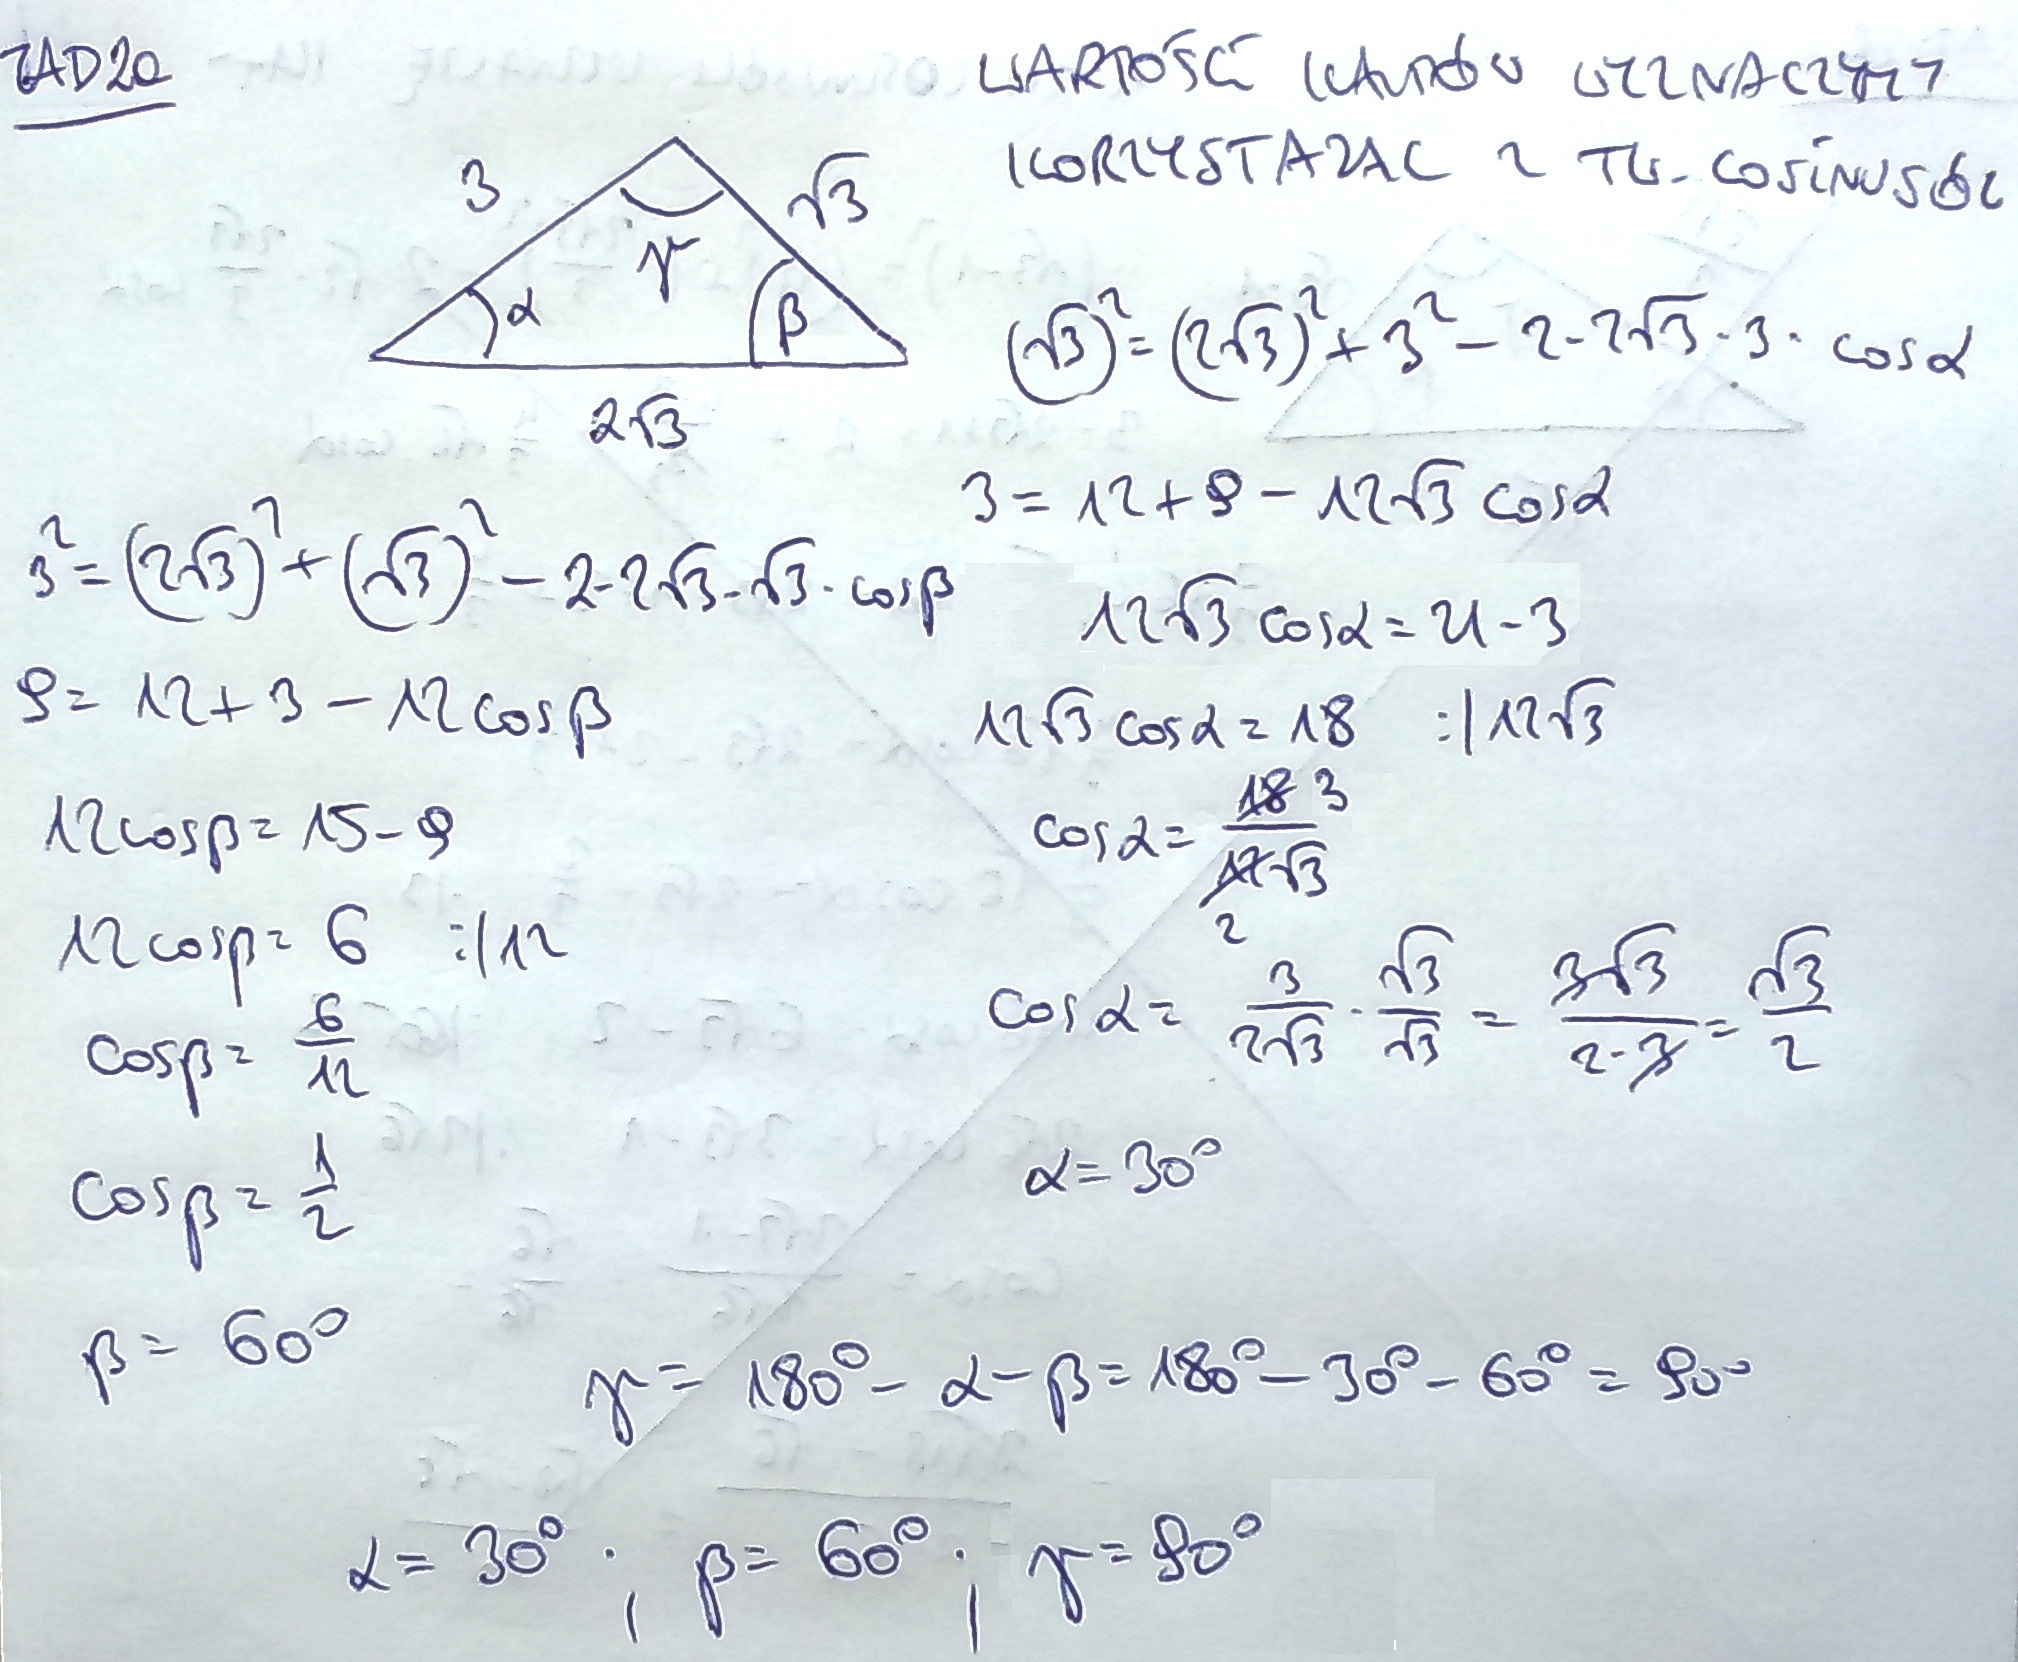 ZAD 2a
WARTOŚĆ KĄTÓW WYZNACZYMY
KORZYSTAJĄC Z TW. COSINUSÓW
3
√3
γ
α
β
2√3
(√3)² = (2√3)² + 3² - 2·2√3·3·cosα
3 = 12 + 9 - 12√3 cosα
12√3 cosα = 21 - 3
12√3 cosα = 18 :/12√3
cosα = 18 3 / 12√3 2
cosα = 3/2√3 · √3/√3 = 3√3/2·3 = √3/2
α = 30°
3² = (2√3)² + (√3)² - 2·2√3·√3·cosβ
9 = 12 + 3 - 12cosβ
12cosβ = 15 - 9
12cosβ = 6 :/12
cosβ = 6/12
cosβ = 1/2
β = 60°
γ = 180° - α - β = 180° - 30° - 60° = 90°
α = 30° ; β = 60° ; γ = 90°